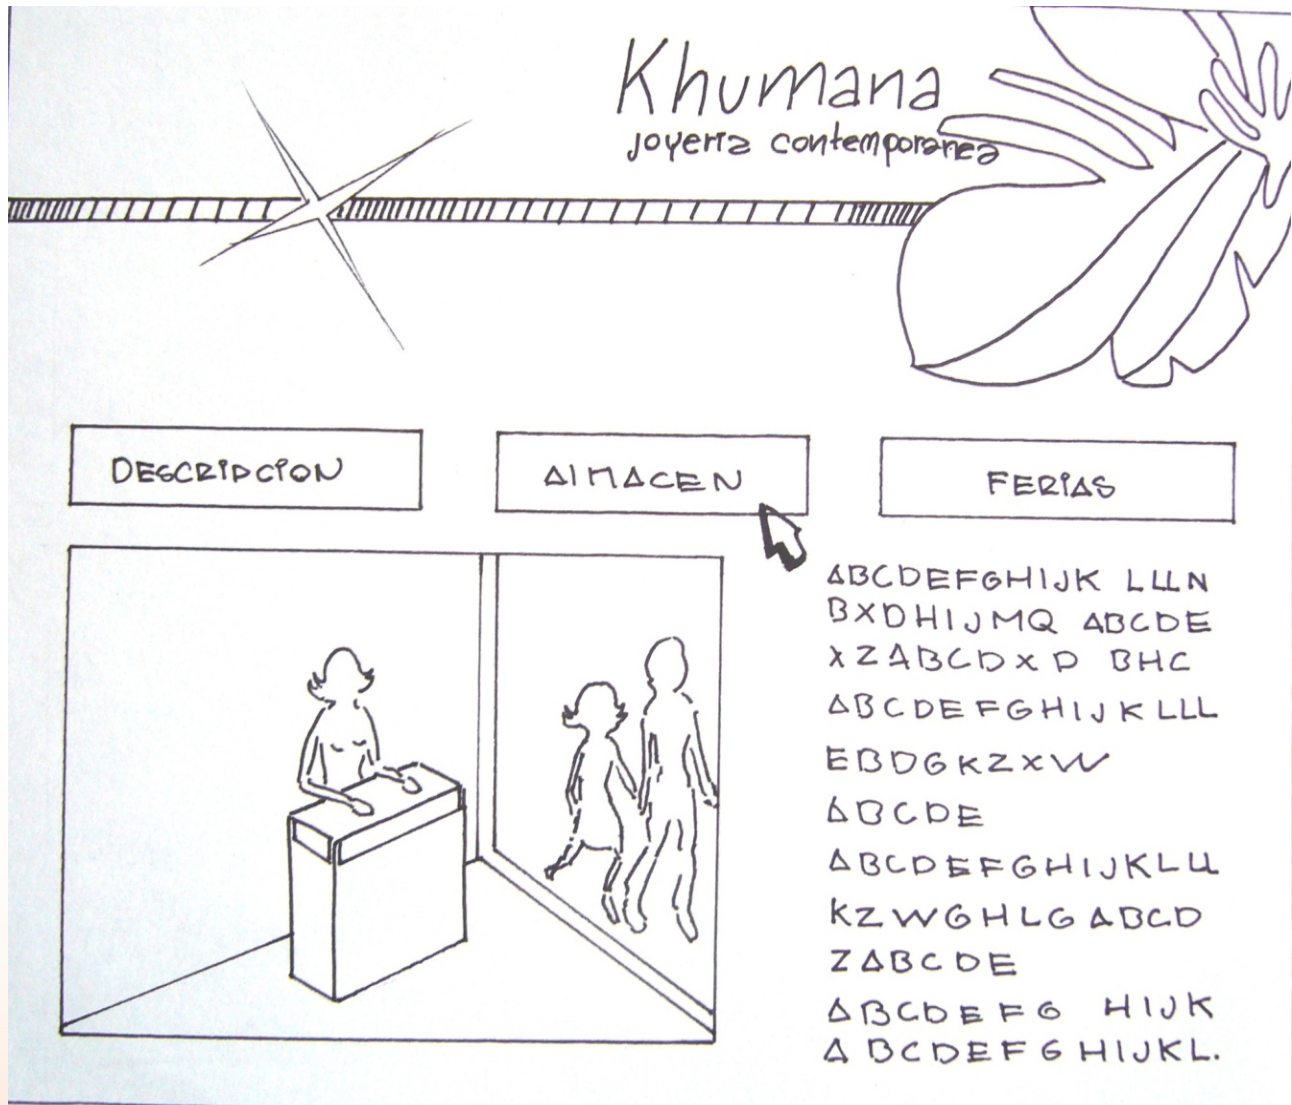 Khumana
joyeria contemporanea
DESCRIPCION
ALMACEN
FERIAS
ABCDEFGHIJK LLLN
BXDHIJMQ ABCDE
XZABCDXD BHC
ABCDEFGHIJKLLL
EBDGKZXW
ABCDE
ABCDEFGHIJKLLL
KZWGHLGABCD
ZABCDE
ABCDEFG HIJK
ABCDEFGHIJKL.